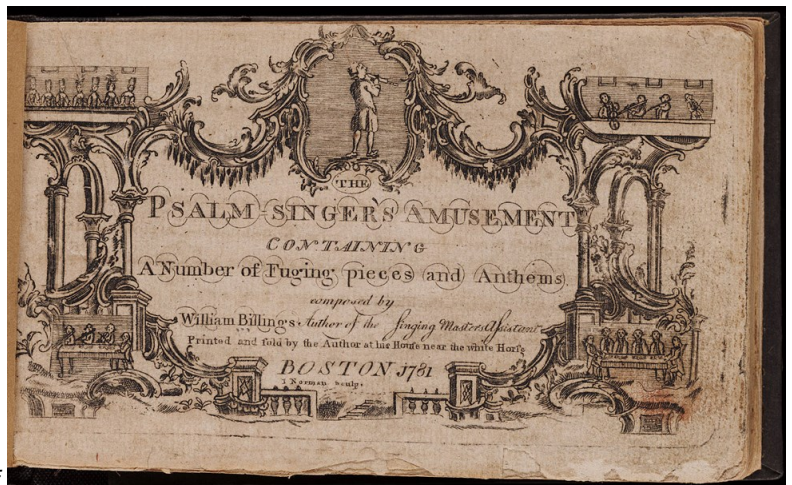 THE
PSALM-SINGER'S AMUSEMENT
CONTAINING
A Number of Fuging pieces and Anthems.
composed by
William Billings Author of the Singing Masters Aſsistant
Printed and ſold by the Author at his Houſe near the white Horſe
BOSTON 1781
I Norman sculp.